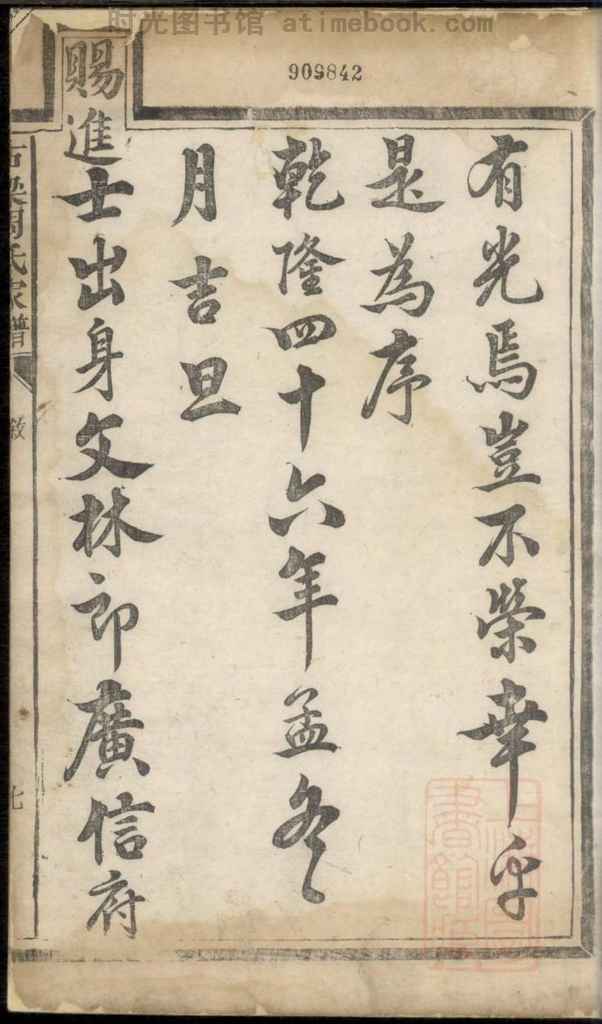 时光图书馆 atimebook.com
909842
有光焉豈不榮幸乎
是為序
乾隆四十六年孟冬
月吉旦
賜進士出身文林郎廣信府
周氏家譜
敘
七